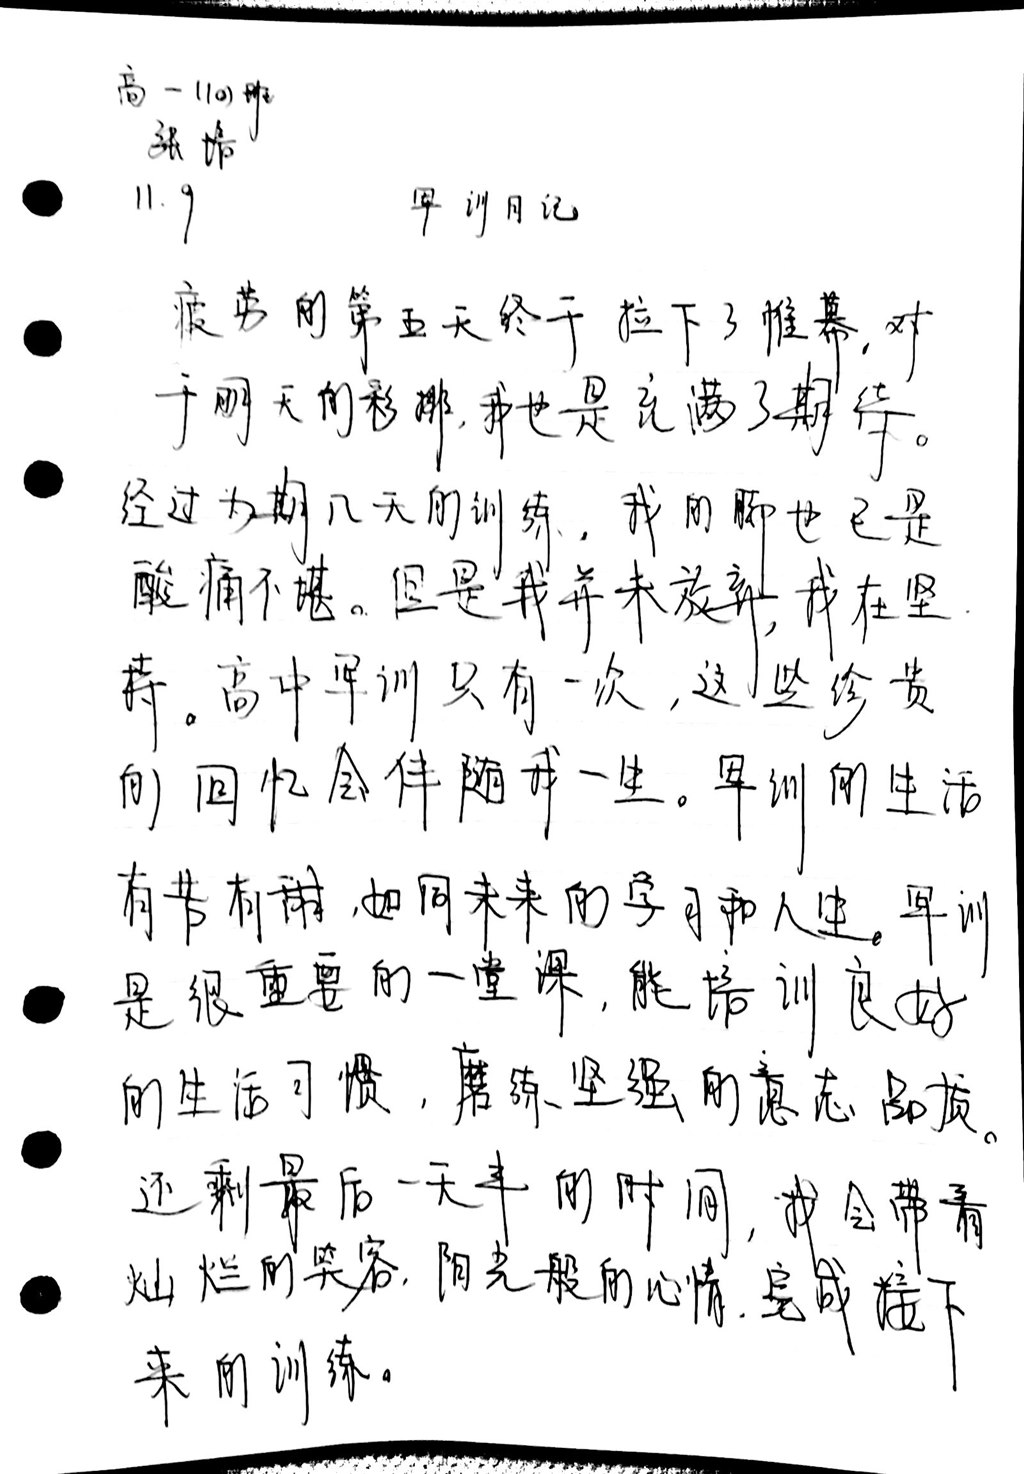 高一(10)班
张培
11.9
军训日记
疲劳的第五天终于拉下了帷幕，对
于明天的彩排，我也是充满了期待。
经过为期几天的训练，我的脚也已是
酸痛不堪。但是我并未放弃，我在坚
持。高中军训只有一次，这些珍贵
的回忆会伴随我一生。军训的生活
有苦有甜，如同未来的学习和人生。军训
是很重要的一堂课，能培训良好
的生活习惯，磨练坚强的意志品质。
还剩最后一天半的时间，我会带着
灿烂的笑容，阳光般的心情，完成接下
来的训练。